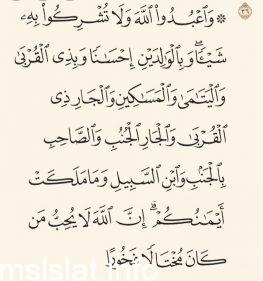 ۞ وَٱعۡبُدُواْ ٱللَّهَ وَلَا تُشۡرِكُواْ بِهِۦ ٣٦
شَيۡـٔٗاۖ وَبِٱلۡوَٰلِدَيۡنِ إِحۡسَٰنٗا وَبِذِي ٱلۡقُرۡبَىٰ
وَٱلۡيَتَٰمَىٰ وَٱلۡمَسَٰكِينِ وَٱلۡجَارِ ذِي
ٱلۡقُرۡبَىٰ وَٱلۡجَارِ ٱلۡجُنُبِ وَٱلصَّاحِبِ
بِٱلۡجَنۢبِ وَٱبۡنِ ٱلسَّبِيلِ وَمَا مَلَكَتۡ
أَيۡمَٰنُكُمۡۗ إِنَّ ٱللَّهَ لَا يُحِبُّ مَن
كَانَ مُخۡتَالٗا فَخُورًا
mslslat.info